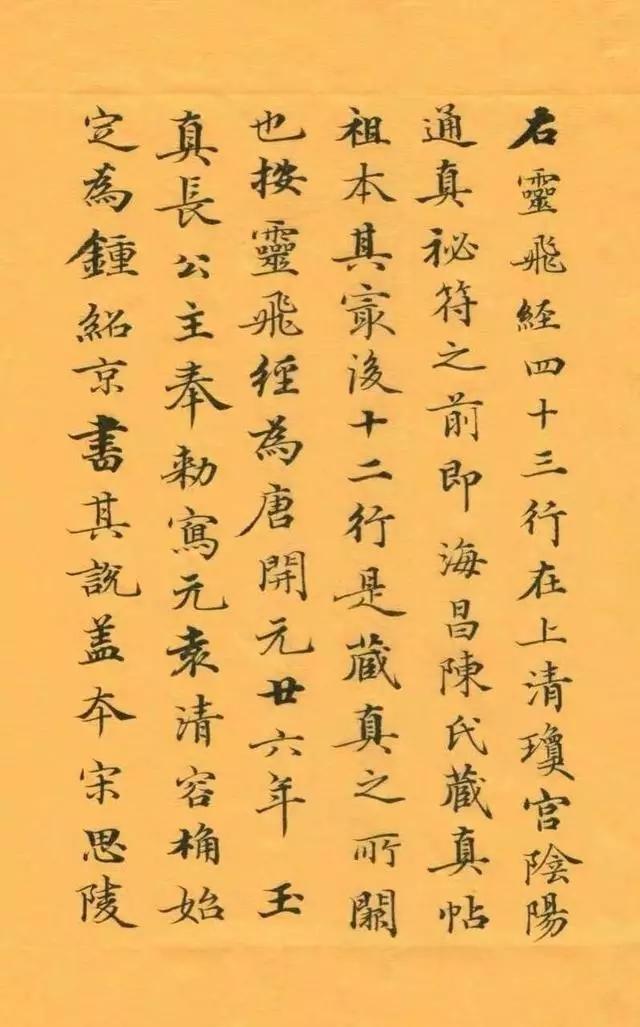 右靈飛經四十三行在上清瓊宮陰陽
通真祕符之前即海昌陳氏藏真帖
祖本其最後十二行是藏真之所闕
也按靈飛經為唐開元廿六年玉
真長公主奉敕寫元袁清容桷始
定為鍾紹京書其說蓋本宋思陵